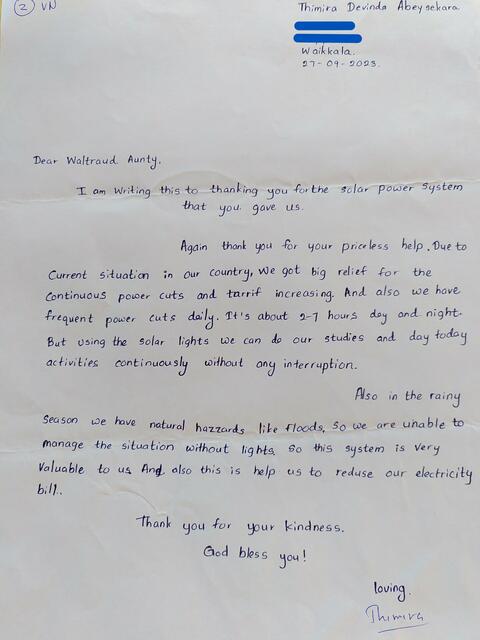 2 VN
Thimira Devinda Abeysekara.
Waikkala.
27-09-2023.
Dear Waltraud Aunty,
I am writing this to thanking you for the solar power system
that you gave us.
Again thank you for your priceless help. Due to
Current situation in our country, we got big relief for the
Continuous power cuts and tarrif increasing. And also we have
frequent power cuts daily. It's about 2-7 hours day and night.
But using the solar lights we can do our studies and day today
activities continuously without any interruption.
Also in the rainy
Season we have natural hazzards like floods, So we are unable to
manage the situation without lights. So this system is very
valuable to us. And also this is help us to reduse our electricity
bill..
Thank you for your kindness.
God bless you!
loving.
Thimira